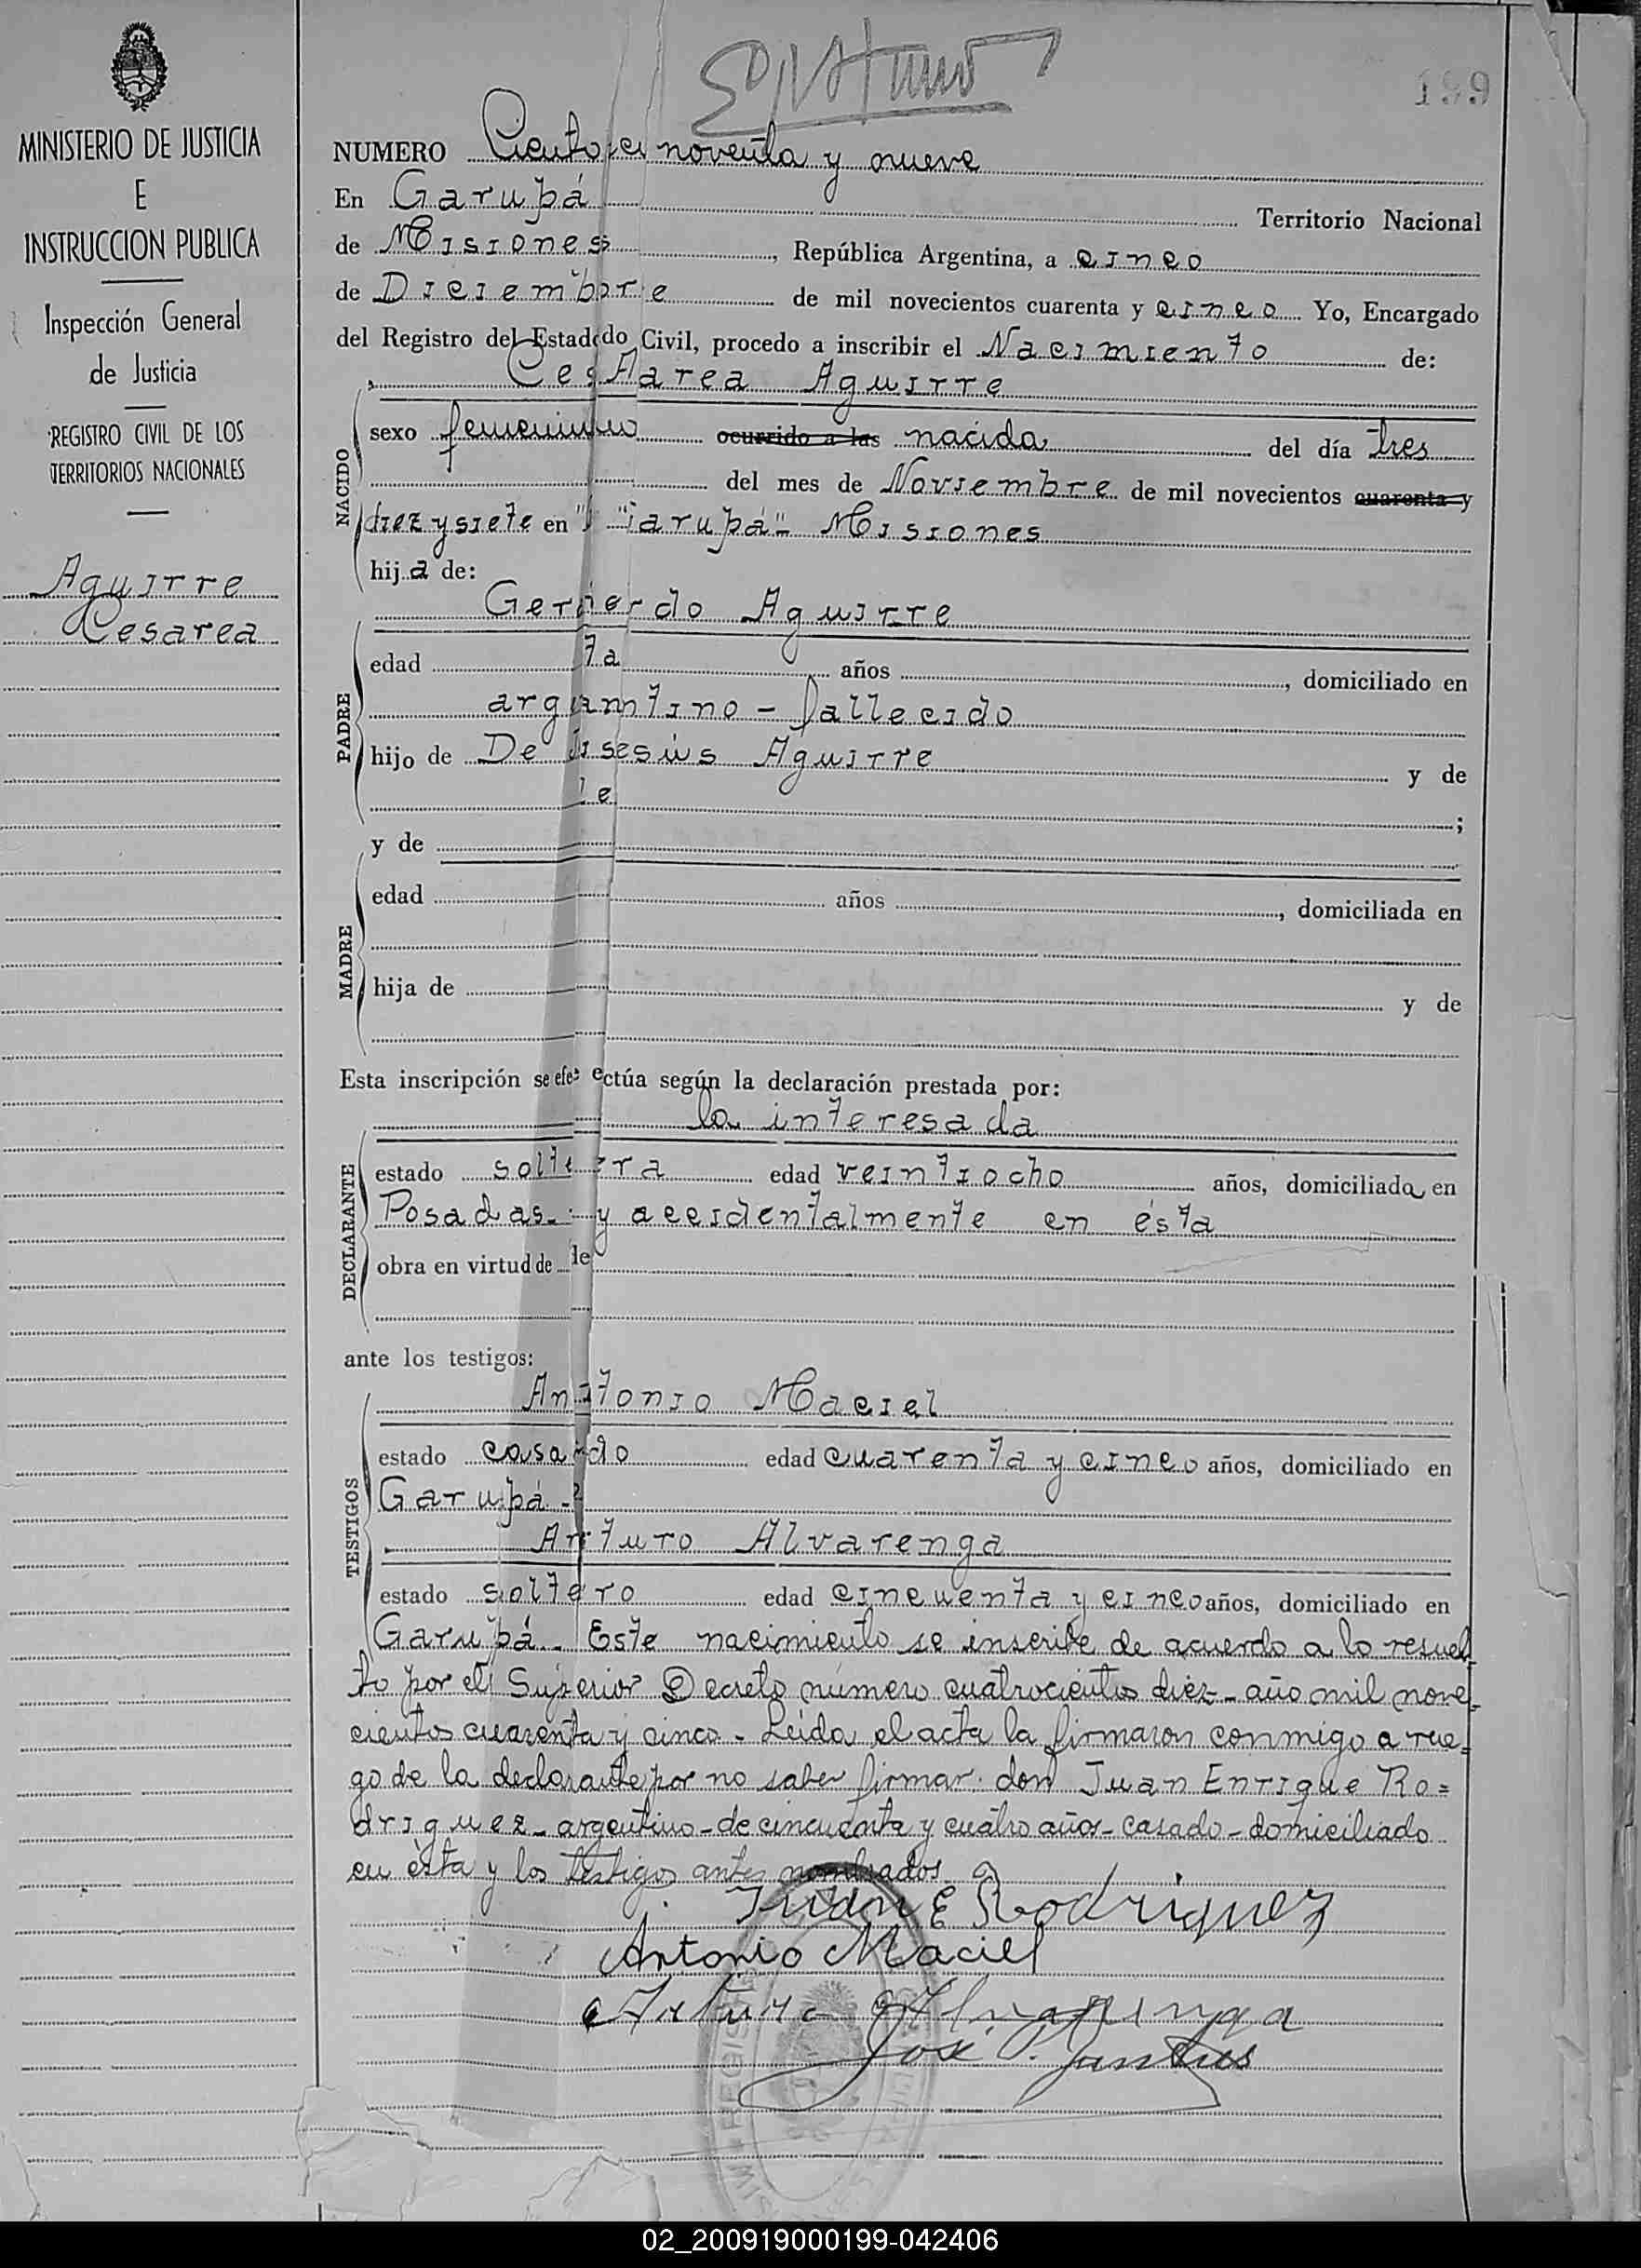 199
MINISTERIO DE JUSTICIA
E
INSTRUCCION PUBLICA
Inspección General
de Justicia
REGISTRO CIVIL DE LOS
TERRITORIOS NACIONALES
Aguirre
Cesarea
NUMERO Ciento noventa y nueve
En Garupá Territorio Nacional
de Misiones, República Argentina, a cinco
de Diciembre de mil novecientos cuarenta y cinco Yo, Encargado
del Registro del Estado Civil, procedo a inscribir el Nacimiento de:
Cesarea Aguirre
NACIDO
sexo femenino ocurrido a las nacida del día tres
del mes de Noviembre de mil novecientos cuarenta y
diez y siete en "Garupá" Misiones
hija de:
Aguirre
PADRE
edad años, domiciliado en
argentino - fallecido
hijo de De Jesús Aguirre y de
;
MADRE
y de
edad años, domiciliada en
hija de y de
Esta inscripción se efectúa según la declaración prestada por:
la interesada
DECLARANTE
estado soltera edad veintiocho años, domiciliada en
Posadas y accidentalmente en ésta
obra en virtud de
ante los testigos:
TESTIGOS
Antonio Maciel
estado casado edad cuarenta y cinco años, domiciliado en
Garupá -
Arturo Alvarenga
estado soltero edad cincuenta y cinco años, domiciliado en
Garupá. Este nacimiento se inscribe de acuerdo a lo resuel
to por el Superior Decreto número cuatrocientos diez - año mil nove-
cientos cuarenta y cinco - Leida el acta la firmaron conmigo a rue=
go de la declarante por no saber firmar don Juan Enrique Ro=
driguez - argentino - de cincuenta y cuatro años - casado - domiciliado
en ésta y los testigos antes nombrados.
Juan E Rodriguez
Antonio Maciel
Arturo Alvarenga
José P.
02_200919000199-042406